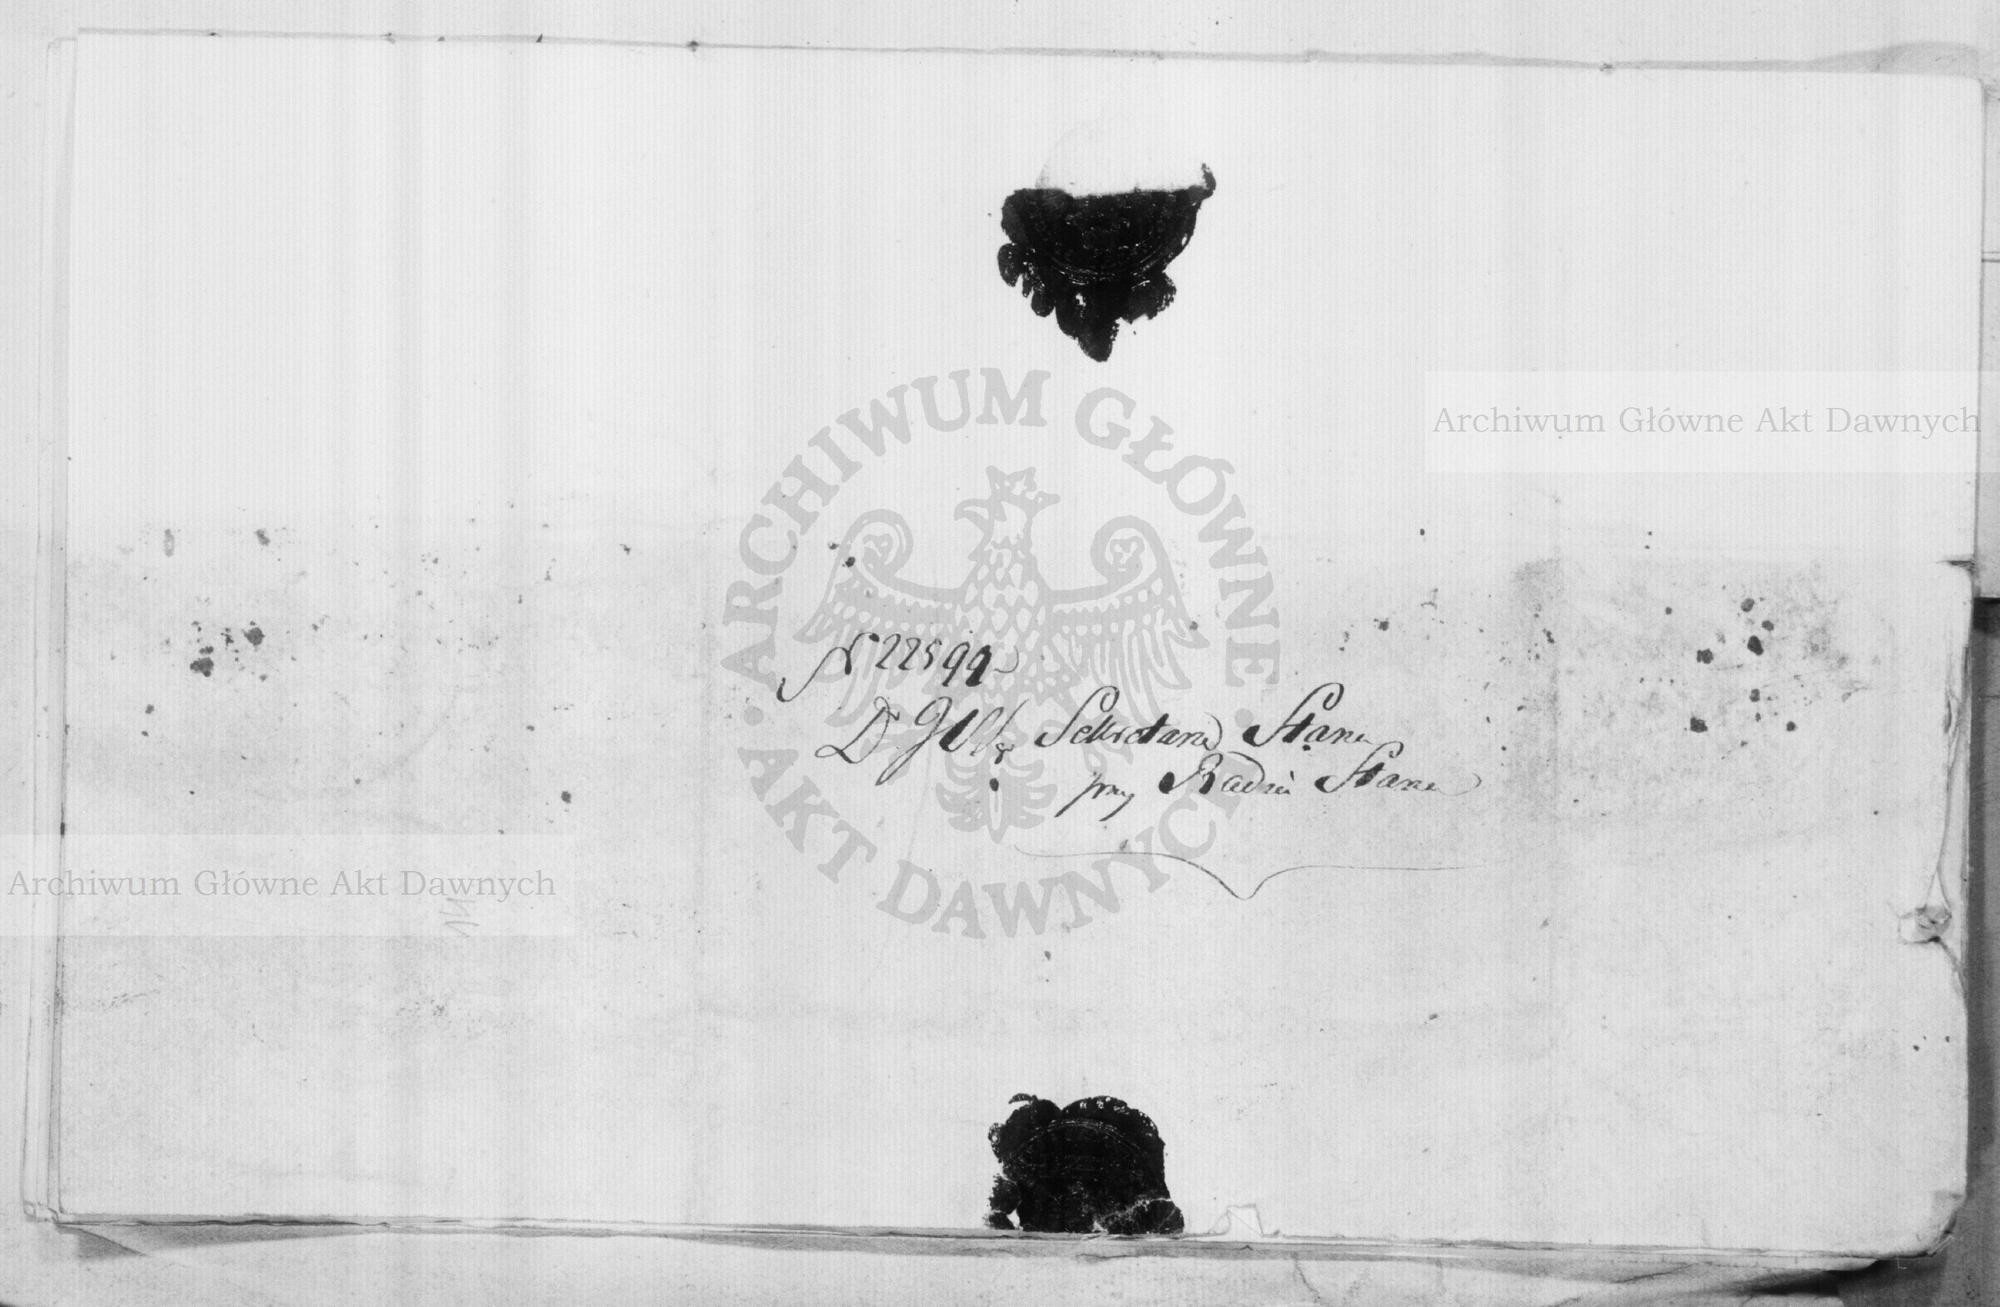 Archiwum Główne Akt Dawnych
ARCHIWUM GŁÓWNE
AKT DAWNYCH
N 22599
D JW Sekretarza Stanu
przy Radzie Stanu
Archiwum Główne Akt Dawnych